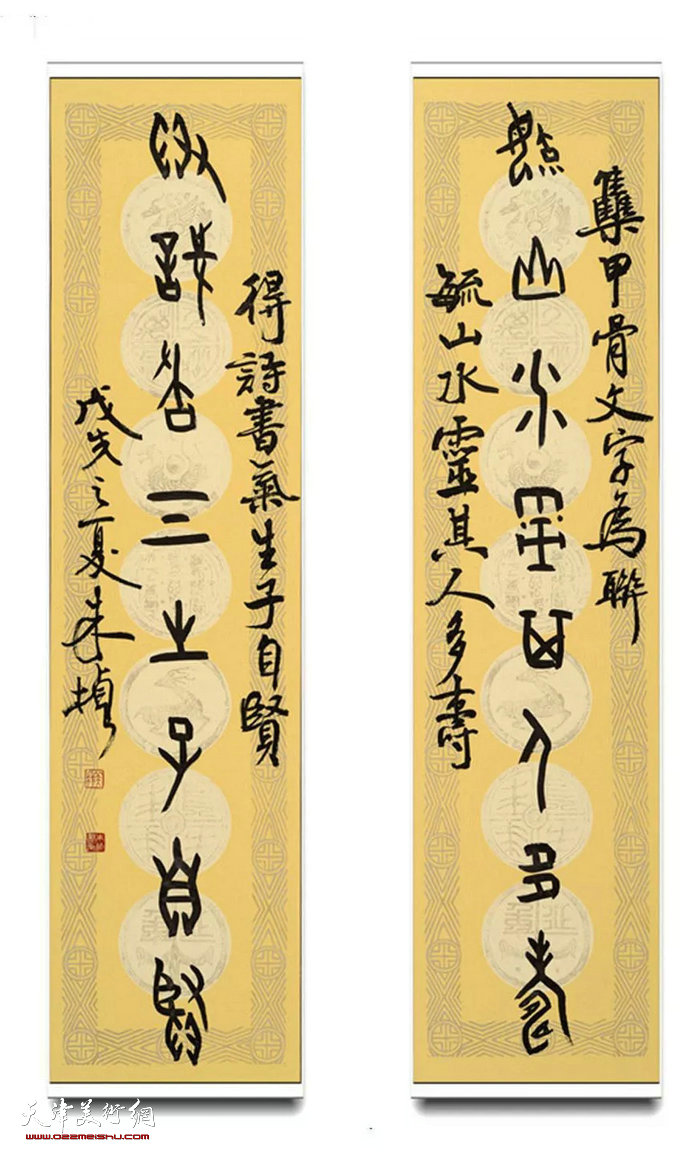 集甲骨文字為聯
毓山水靈其人多壽
毓山水靈其人多壽
得詩書氣生子自賢
得詩書气生子自賢
之夏朱
天津美術網
www.022meishu.com